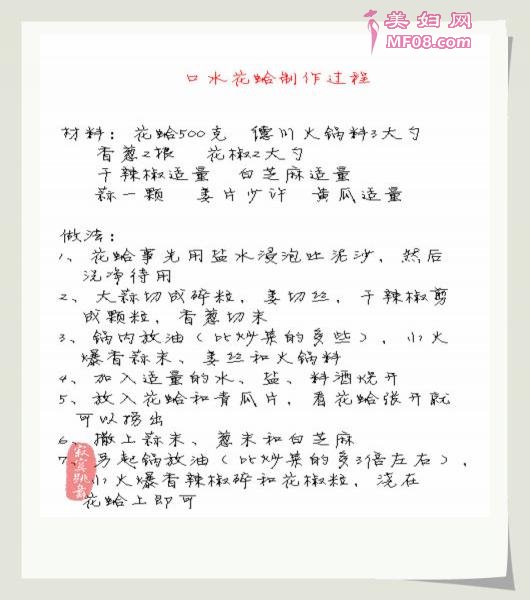 美妇网
MF08.com
口水花蛤制作过程
材料：花蛤500克 德川火锅料3大勺
香葱2根 花椒2大勺
干辣椒适量 白芝麻适量
蒜一颗 姜片少许 黄瓜适量
做法：
1、花蛤事先用盐水浸泡吐泥沙，然后
洗净待用
2、大蒜切成碎粒，姜切丝，干辣椒剪
成颗粒，香葱切末
3、锅内放油（比炒菜的多些），小火
爆香蒜末、姜丝和火锅料
4、加入适量的水、盐、料酒烧开
5、放入花蛤和青瓜片，看花蛤张开就
可以捞出
6、撒上蒜末、葱末和白芝麻
7、另起锅放油（比炒菜的多3倍左右），
小火爆香辣椒碎和花椒粒，浇在
花蛤上即可